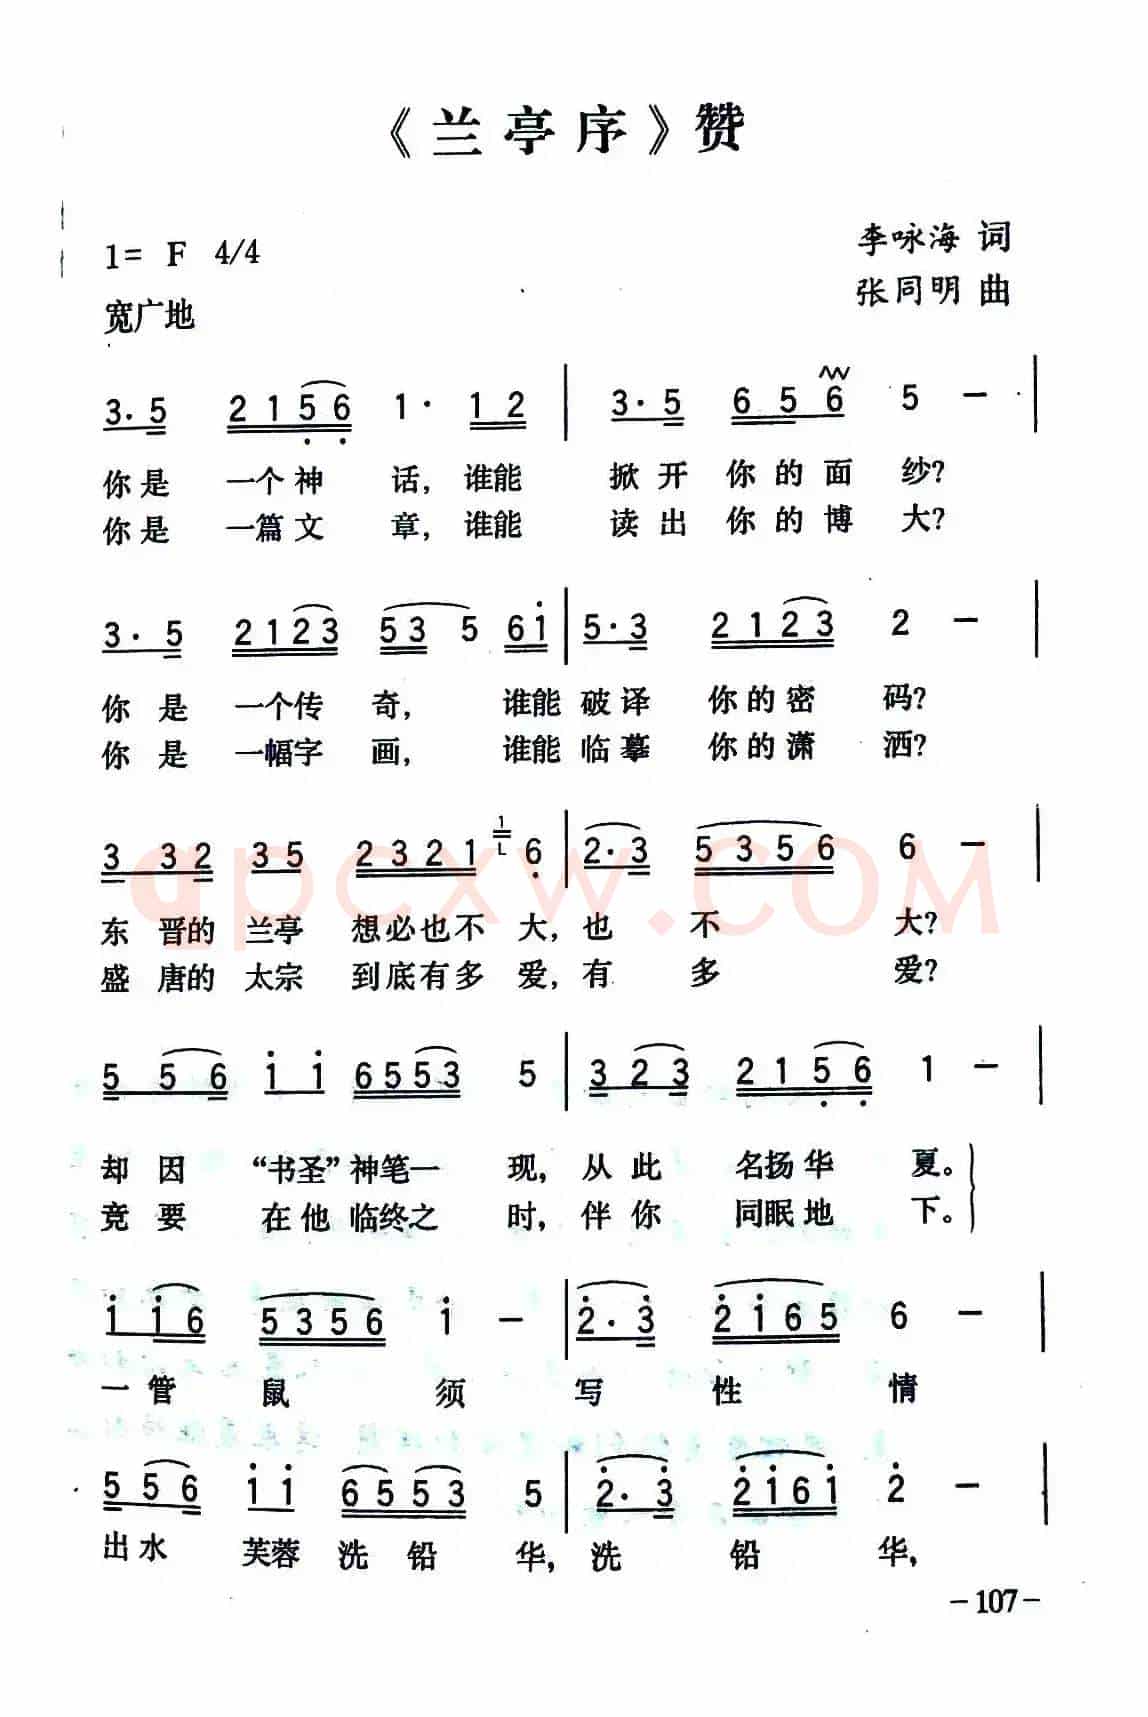 《兰亭序》赞
1= F 4/4
李咏海 词
宽广地
张同明 曲
3·5 2156 1· 12 | 3·5 656 5 - |
你是 一个神 话, 谁能 掀开 你的面 纱?
你是 一篇文 章, 谁能 读出 你的博 大?
3·5 2123 53 5 61 | 5·3 2123 2 - |
你是 一个传 奇, 谁能 破译 你的密 码?
你是 一幅字 画, 谁能 临摹 你的潇 洒?
3 32 35 2321 1 6 | 2·3 5356 6 - |
东 晋的 兰亭 想必也不 大, 也 不 大?
盛 唐的 太宗 到底有多 爱, 有 多 爱?
5 56 11 6553 5 | 3 23 2156 1 - |
却 因 “书圣”神笔一 现, 从此 名扬华 夏。
竟 要 在他 临终之 时, 伴你 同眠地 下。
1 16 5356 1 - | 2·3 2165 6 - |
一管 鼠 须 写 性 情
5 56 11 6553 5 | 2·3 2161 2 - |
出水 芙蓉 洗 铅 华, 洗 铅 华,
qpcxw.com
-107-